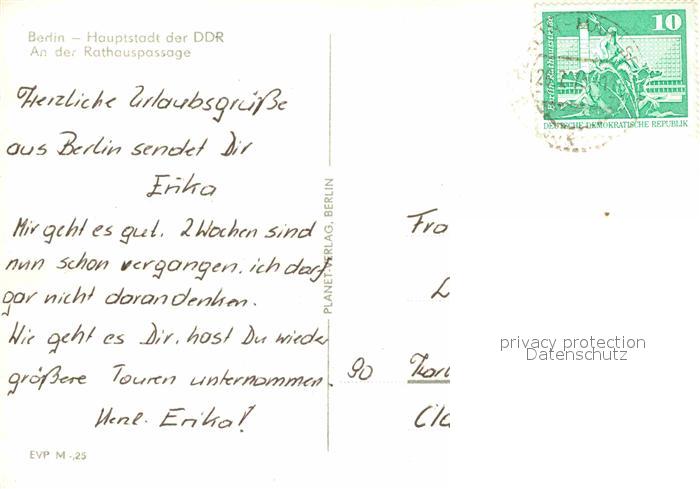 Berlin – Hauptstadt der DDR
An der Rathauspassage
Herzliche Urlaubsgrüße
aus Berlin sendet Dir
Erika
Mir geht es gut. 2 Wochen sind
nun schon vergangen, ich darf
gar nicht daran denken.
Wie geht es Dir, hast Du wieder
größere Touren unternommen.
Herzl. Erika!
EVP M -,25
PLANET-VERLAG, BERLIN
10
Berlin, Rathausstraße
DEUTSCHE DEMOKRATISCHE REPUBLIK
Fra
L
privacy protection
Datenschutz
90